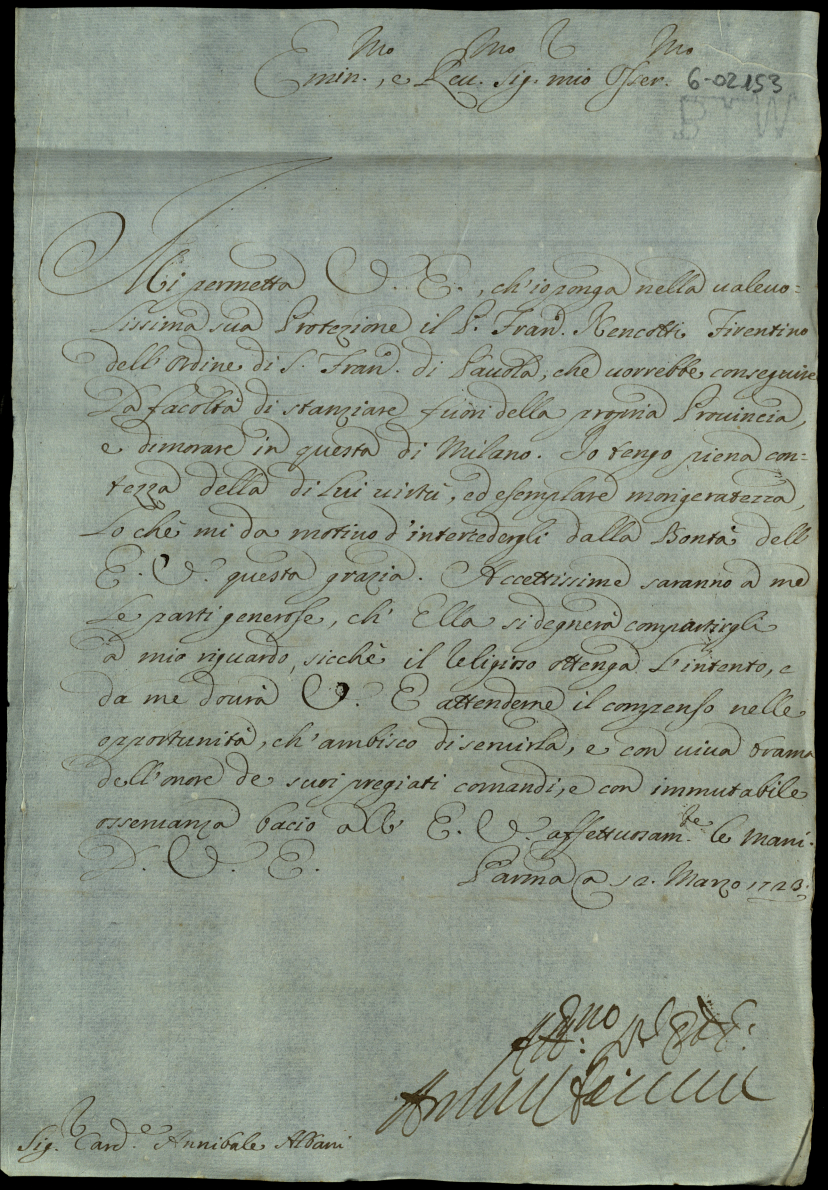 Emin.mo, e Reu.mo Sig.r mio Osser.mo
6-02153
Mi permetta V. E., ch'io ponga nella valeuo=
lissima sua Protezione il P. Fran.o Nencetti Firentino
dell'Ordine di S. Fran.o di Pauola, che vorrebbe conseguire
la facoltà di stanziare fuori della propria Prouincia,
e dimorare in questa di Milano. Io tengo piena con=
tezza della di Lui virtù, ed esemplare morigeratezza,
lo che mi da motivo d'intercedergli dalla Bontà dell'
E. V. questa grazia. Accettissime saranno a me
le parti generose, ch'Ella si degnerà compartirgli
a mio riguardo, sicchè il Religioso ottenga l'intento, e
da me dourà V. E. attenderne il compenso nelle
opportunità, ch'ambisco di seruirla, e con viva brama
dell'onore de suoi pregiati comandi, e con immutabile
osseruanza bacio all' E. V. affettuosam.te le mani.
D. V. E. Parma a 12. Marzo 1723.
Sig.r Card.e Annibale Albani